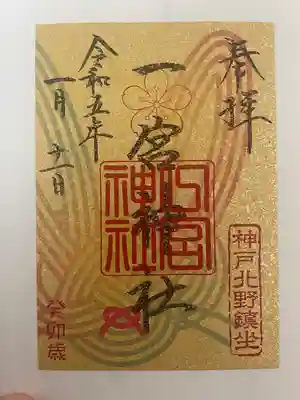 奉拝
神戸北野鎮坐
一宮神社
一宮神社
令和五年
一月十一日
癸卯歳